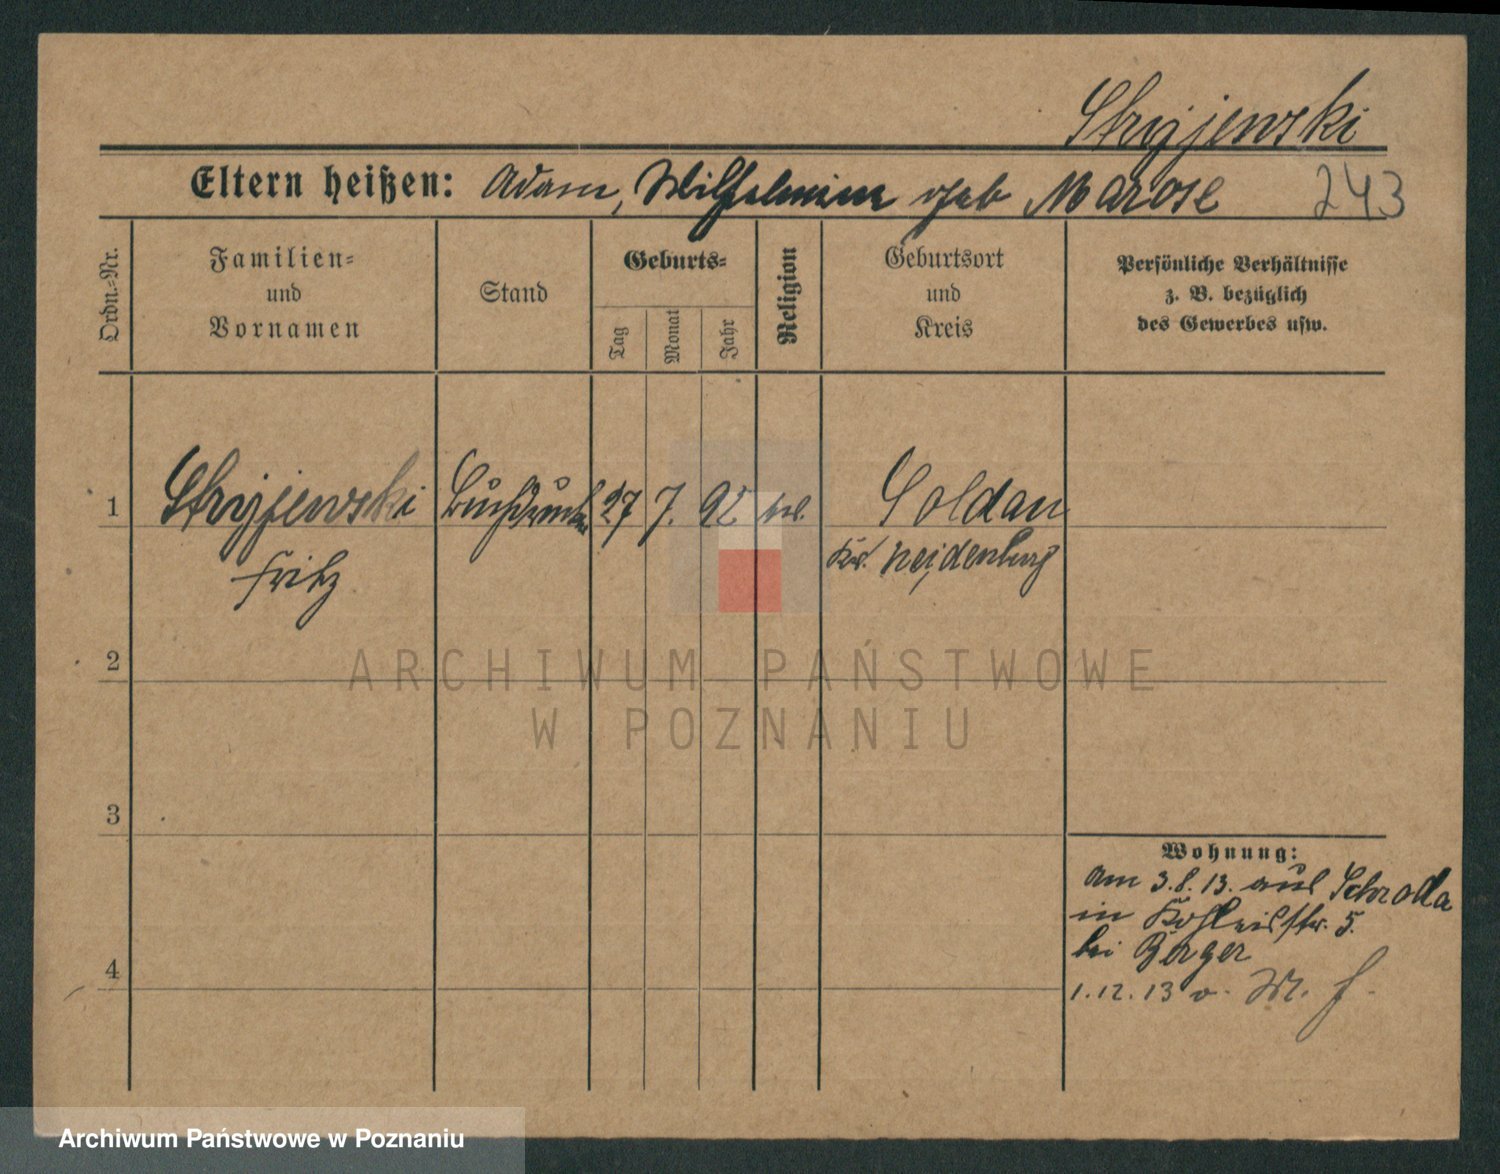 Stryjewski
Eltern heißen: Adam, Wilhelmine geb Marose 243
Ordn.-Nr.
Familien-
und
Vornamen
Stand
Geburts-
Tag
Monat
Jahr
Religion
Geburtsort
und
Kreis
Persönliche Verhältnisse
z. B. bezüglich
des Gewerbes usw.
1 Stryjewski Buchdrucker 27 7. 92 ev. Soldau
Fritz Kr. Neidenburg
2
ARCHIWUM PAŃSTWOWE
W POZNANIU
3
Wohnung:
am 3.8.13. aus Schroda
in str. 5.
bei Berger
4
1.12.13 v.
Archiwum Państwowe w Poznaniu